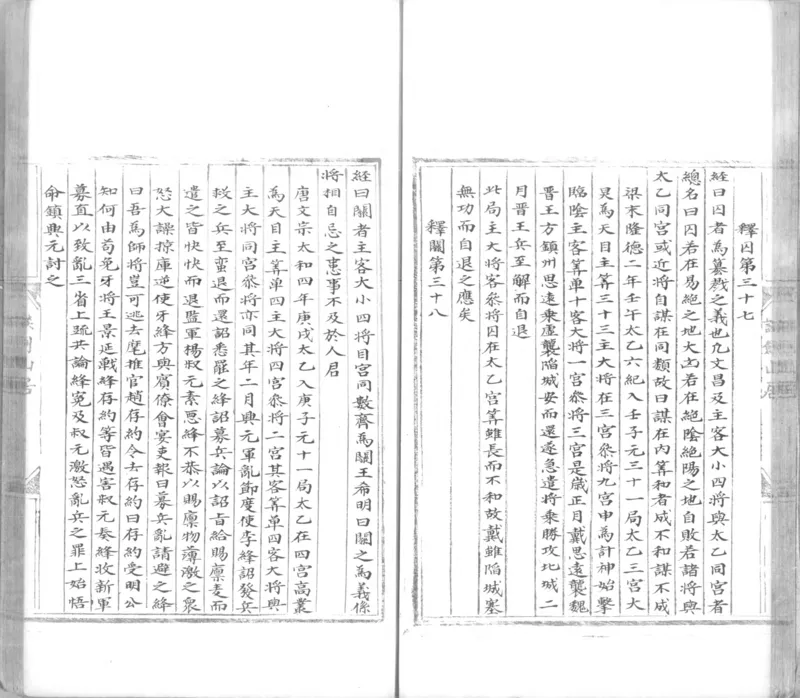 釋囚第三十七
經曰囚者為篡戮之義也凡文昌及主客大小四將與太乙同宮者
總名曰囚若在易絕之地大凶若在絕陰絕陽之地自敗若諸將與
太乙同宮或近將自謀在同類故曰謀在內筭和者成不和謀不成
梁末隆德二年壬午太乙六紀入壬子元三十一局太乙三宮大
炅為天目主筭三十三主大將在三宮叅將九宮申為計神始擊
臨陰主客筭單十客大將一宮叅將三宮是歲正月戴思遠襲魏
晉王方鎮州思遠乘虛襲陷城安而還遂急遣將乘勝攻北城二
月晉王兵至解而自退
此局主大將客叅將囚在太乙宮筭雖長而不和故戴雖陷城塞
無功而自退之應矣
釋關第三十八
經曰關者主客大小四將目宮同數齊為關王希明曰關之為義係
將相自忌之事不及於人君
唐文宗太和四年庚戌太乙入庚子元十一局太乙在四宮高叢
為天目主筭單四主大將四宮叅將二宮其客筭單四客大將與
主大將同宮叅將亦同其年二月興元軍亂節度使李絳詔發兵
救之兵至蠻退而還詔悉罷之絳詔募兵論以詔旨給賜廩麦而
遣之皆快快而退監軍楊叔元素惡絳不恭以賜廩物薄激之眾
怒大譟掠庫逆使牙絳方與賓僚會宴吏報曰募兵亂請避之絳
曰吾為師將豈可逃去麾推官趙存約令去存約曰存約受明公
知何由苟免牙將王景延戰絳存約等皆遇害叔元奏絳收新軍
募直以致亂三省上疏共論絳冤及叔元激怒亂兵之罪上始悟
命鎮興元討之